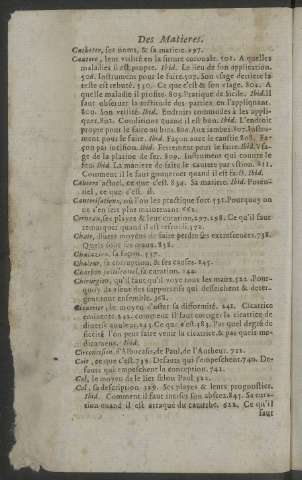 Des Matieres.
Cacheter, ses noms, & sa matiere. 297.
Cautere, leur usité en la suture coronale. 501. A quelles
maladies il est propre. Ibid. Le lieu de son application.
506. Instrument pour le faire. 507. Son usage derriere la
teste est rebuté. 510. Ce que c'est & son usage. 802. A
quelle maladie il profite. 805. Pratique de Sicile. Ibid. Il
faut observer la rectitude des parties en l'appliquant.
800. Son utilité. Ibid. Endroits communs à les appli-
quer. 801. Conditions quand il est bon. Ibid. L'endroit
propre pour le faire au bras. 800. Aux jambes. 807. Instru-
ment pour le faire. Ibid. Façon avec le causte. 808. Fa-
çon par incision. Ibid. Ferrement pour le faire. Ibid. V-
sage de la platine de fer. 809. Instrument qui contre le
feu. Ibid. La maniere de faire le cautere par vstion. 811.
Comment il le faut gouverner quand il est fait. Ibid.
Cautere actuel, ce que c'est. 834. Sa matiere. Ibid. Poten-
tiel, ce que c'est. Ib.
Cauterisations, où l'on les practique fort. 731. Pourquoy on
ne s'en sert plus maintenant. 661.
Cerveau, ses playes & leur curation. 297. 298. Ce qu'il faut
remarquer quand il est refroidi. 372.
Chair, divers moyens de faire perdre ses excroissances. 738.
Quels sont ses maux. 838.
sa façon. 737.
Chaleur, sa corruption, & ses causes. 845.
Charbon pestilentiel, sa curation. 140.
Chirurgien, qu'il faut qu'il voye tous les maux. 522. Pour-
quoy ils usent des suppuratifs qui dessechent & deter-
gent tout ensemble. 368.
Cicatrice, le moyen d'oster sa difformité. 242. Cicatrice
eminente. 242. comment il faut corriger la cicatrice de
diverse couleur. 243. Ce que c'est. 383. Par quel degré de
siccité l'on peut faire venir la cicatrice, & par quels me-
dicamens. Ibid.
Circoncision, d'Albucasis, de Paul, de l'Autheur. 711.
Coit, ce que c'est. 738. Defauts qui l'empeschent. 740. De-
fauts qui empeschent la conception. 741.
Col, le moyen de le lier selon Paul. 522.
Col, sa description. 519. Ses playes & leurs prognostics.
Ibid. Comment il faut inciser son abscez. 847. Sa cura-
tion quand il est attaqué du catarrhe. 622. Ce qu'il
faut